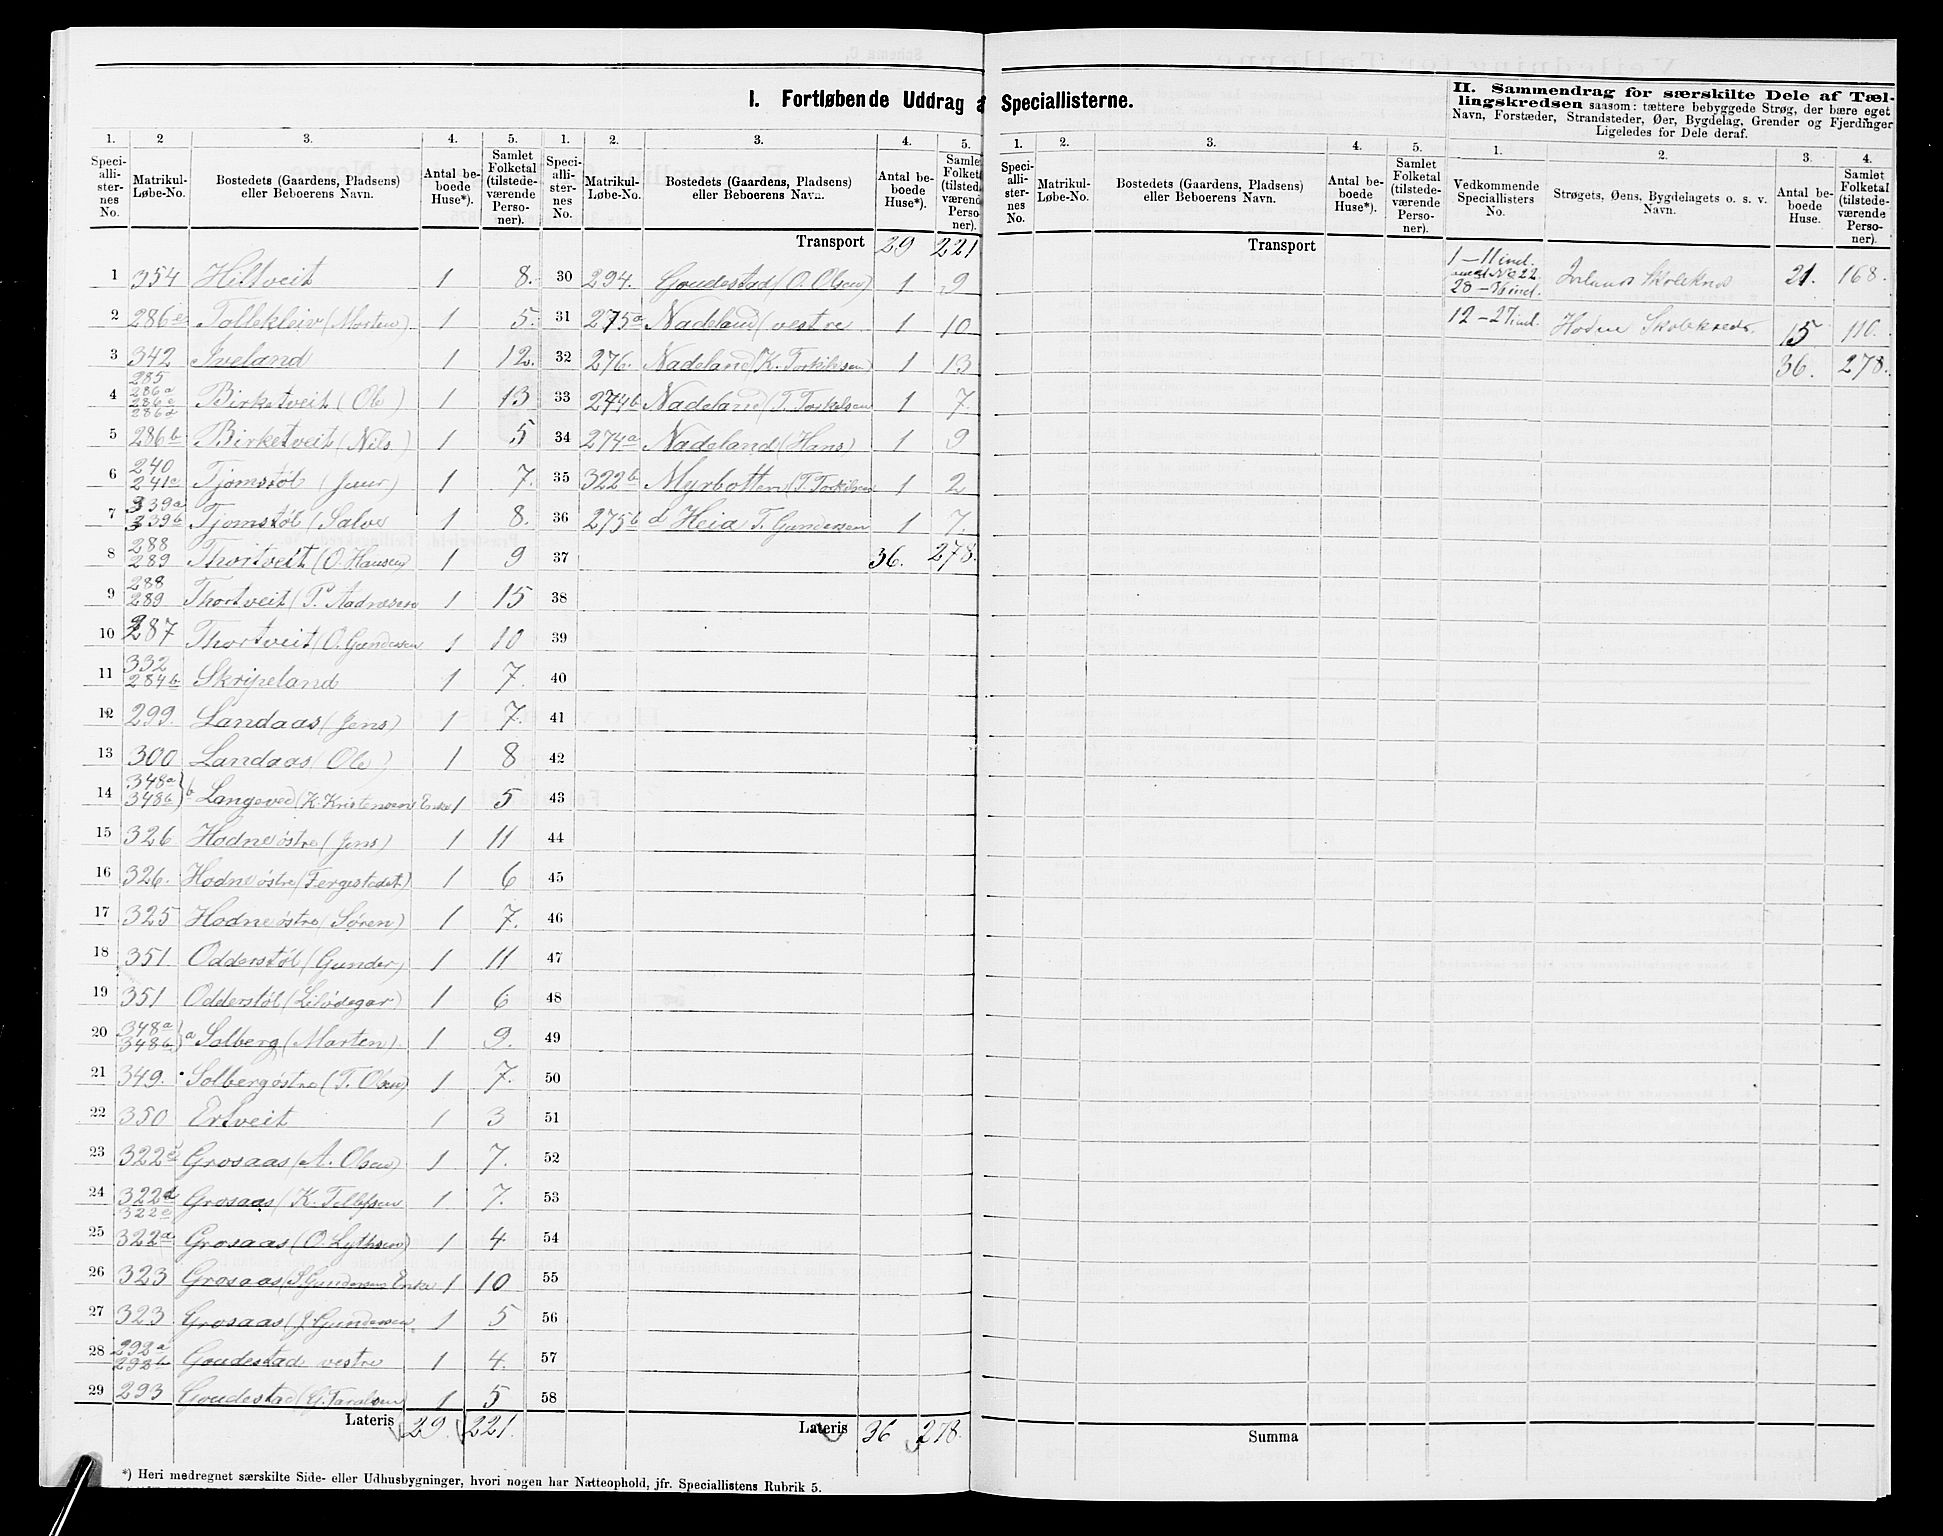 I. Fortløbende Uddrag a
1. 2 3. 4. 5.
Speciallisternes No. Matrikul-Løbe-No. Bostedets (Gaardens, Pladsens) eller Beboerens Navn. Antal beboede Huse*). Samlet Folketal (tilstedeværende Personer).
1 354 Hiltveit 1 8.
2 286e Tollekleiv (Morten) 1 5.
3 342 Iveland 1 12.
4 285 286a 286c 286d Birketveit (Ole) 1 13
5 286b Birketveit (Nils) 1 5
6 240 241c Tjomstøl (Juur) 1 7.
7 339a 339b Tjomstøl (Salve 1 8.
8 288 289 Thortveit (O. Hansen) 1 9
9 288 289 Thortveit (P. Aadnesen 1 15
10 287 Thortveit (O. Gundersen 1 10
11 332 284b Skripeland 1 7.
12 299. Landaas (Jens) 1 7.
13 300 Landaas (Ole) 1 8
14 348a 348b } b Langeved (K. Kristensen Enke 1 5
15 326 Hodne østre (Jens) 1 11
16 326. Hodne østre (Fergestedet) 1 6
17 325 Hodne østre (Søren) 1 7.
18 351 Odderstøl (Gunder) 1 11
19 351 Odderstøl (Lilødegar) 1 6
20 348a 348b } a Solberg (Morten) 1 9.
21 349. Solberg østre (T. Olsen) 1 7.
22 350 Ertveit 1 3
23 322 Grosaas (A. Olsen) 1 7.
24 322d 322e Grosaas (K. Tellefsen 1 7.
25 322a Grosaas (O. Lythsen) 1 4
26 323 Grosaas (S. Gundersens Enke 1 10
27 323 Grosaas (J Gundersen. 1 5
28 292a 292b Goudestad vestre 1 4.
29 293 Goudestad (G. Taralsen) 1 5
Lateris 29. 221.
*) Heri medregnet særskilte Side- eller Udhusbygninger, hvori nogen har Natteophold, jfr. Speciallistens Rubrik 5.
1. 2. 3. 4. 5.
Speciallisternes No. Matrikul-Løbe-No. Bostedets (Gaardens, Pladsens) eller Beboerens Navn. Antal beboede Huse*). Samle Folketal (tilsted værend Perso ner).
Transport 29 221
30 294. Goudestad (O. Olsen) 1 9
31 275a Nadeland (vestre 1 10
32 276. Nadeland (K. Torkilsen) 1 13
33 274b Nadeland (T. Torkelsen 1 7.
34 274a Nadeland (Hans) 1 9
35 322b Myrbotten (T. Torkilsen 1 2
36 275b d Heia T. Gundersen 1 7.
37 36. 278.
38
39
40
41
42
43
44
45
46
47
48
49
50
51
52
53
54
55
56
57
58
Lateris 36 278.
Speciallisterne.
1. 2. 3. 4. 5.
Speciallisternes No. Matrikul-Løbe-No. Bostedets (Gaardens, Pladsens) eller Beboerens Navn. Antal beboede Huse*). Samlet Folketal (tilstedeværende Personer).
Transport
Summa
II. Sammendrag for særskilte Dele af Tællingskredsen saasom: tættere bebyggede Strøg, der bære eget
Navn, Forstæder, Strandsteder, Øer, Bygdelag, Grender og Fjerdinger
Ligeledes for Dele deraf.
1. 2. 3. 4.
Vedkommende Speciallisters No. Strøgets, Øens, Bygdelagets o. s. v. Navn. Antal beboede Huse. Samlet Folketal (tilstedeværende Personer).
1 – 11 incl. No 22. 28 – 36 incl. Skolekreds 21. 168.
12 – 27 incl. Hodne Skolekreds. 15 110.
36. 278.